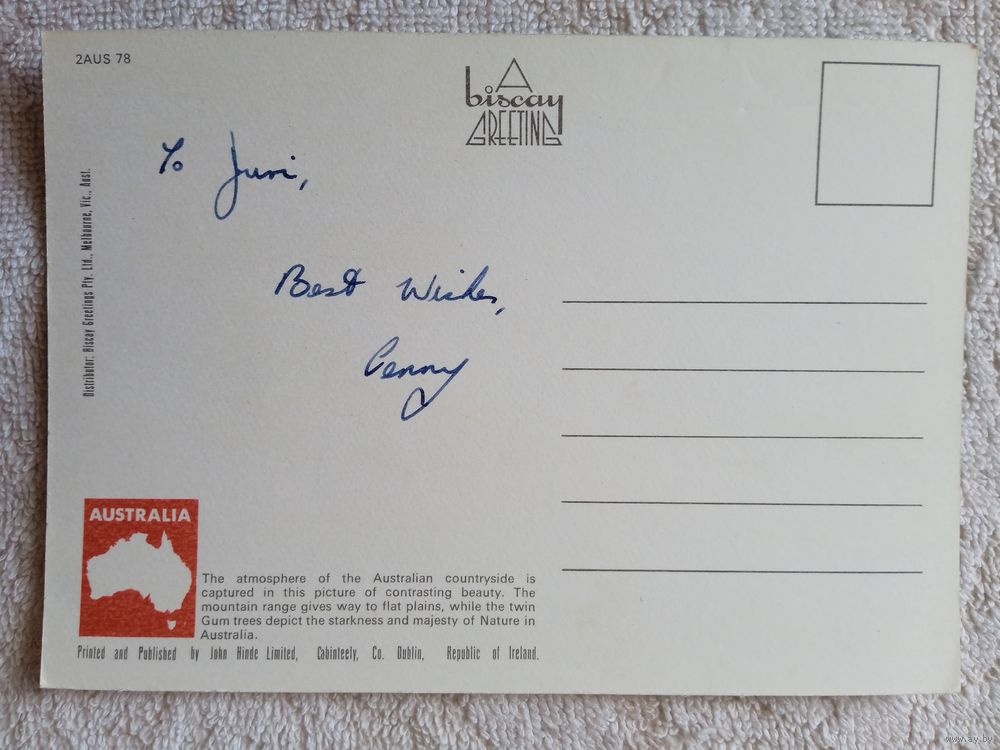 2AUS 78
A
biscay
GREETING
To Juri,
Best Wishes,
Penny
Distributor: Biscay Greetings Pty. Ltd., Melbourne, Vic., Aust.
AUSTRALIA
The atmosphere of the Australian countryside is
captured in this picture of contrasting beauty. The
mountain range gives way to flat plains, while the twin
Gum trees depict the starkness and majesty of Nature in
Australia.
Printed and Published by John Hinde Limited, Cabinteely, Co. Dublin, Republic of Ireland.
www.ay.by